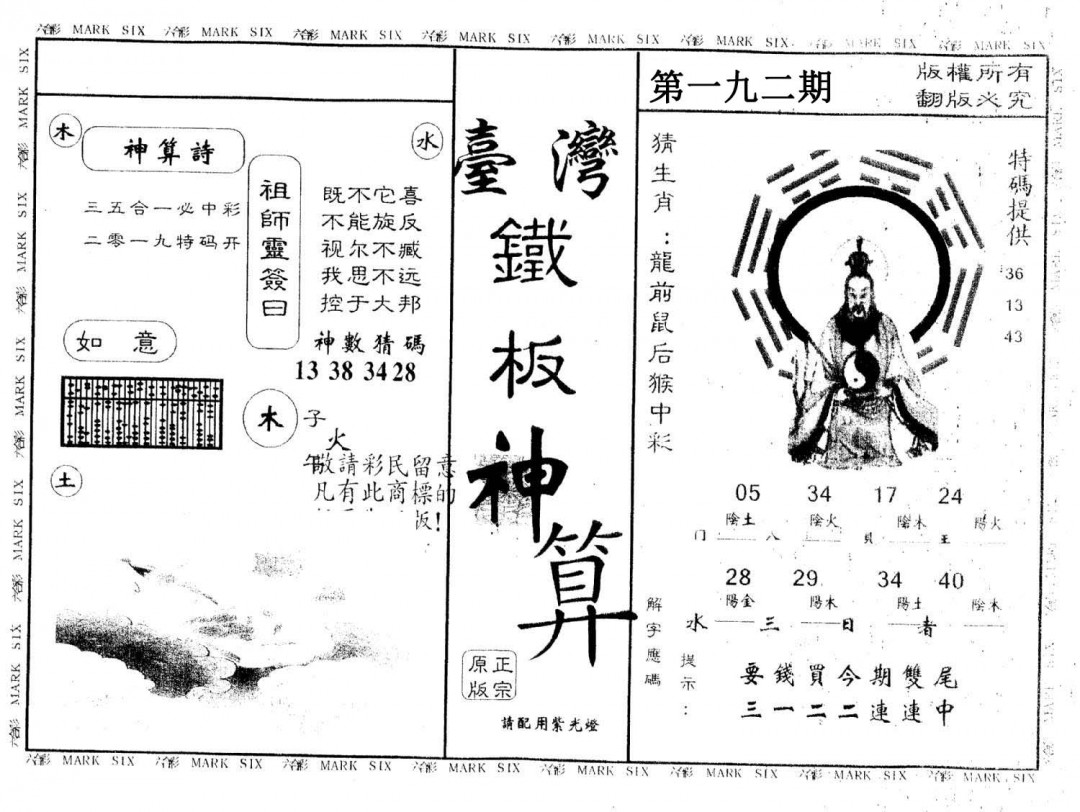 六合彩 MARK SIX 六合彩 MARK SIX 六合彩 MARK SIX 六合彩 MARK SIX 六合彩 MARK SIX 六合彩 MARK SIX 六合彩 MARK SIX 六合彩 MARK SIX
木
神算詩
水
三五合一必中彩
二零一九特码开
祖師靈簽曰
既不它喜
不能旋反
视尔不臧
我思不远
控于大邦
如意
神數猜碼
13 38 34 28
木
子
火
午
敬請彩民留意
凡有此商標的
版!
土
臺灣
鐵
板
神
算
正宗
原版
請配用紫光燈
第一九二期
版權所有
翻版必究
猜生肖：龍前鼠后猴中彩
特碼提供
36
13
43
05 34 17 24
陰土 陰火 陰木 陽火
门 八 貝 王
28 29 34 40
陽金 陽木 陽土 陰木
水 三 日 者
解字應碼
提示：
要錢買今期雙尾
三一二二連連中
六合彩 MARK SIX 六合彩 MARK SIX 六合彩 MARK SIX 六合彩 MARK SIX 六合彩 MARK SIX 六合彩 MARK SIX 六合彩 MARK SIX 六合彩 MARK SIX